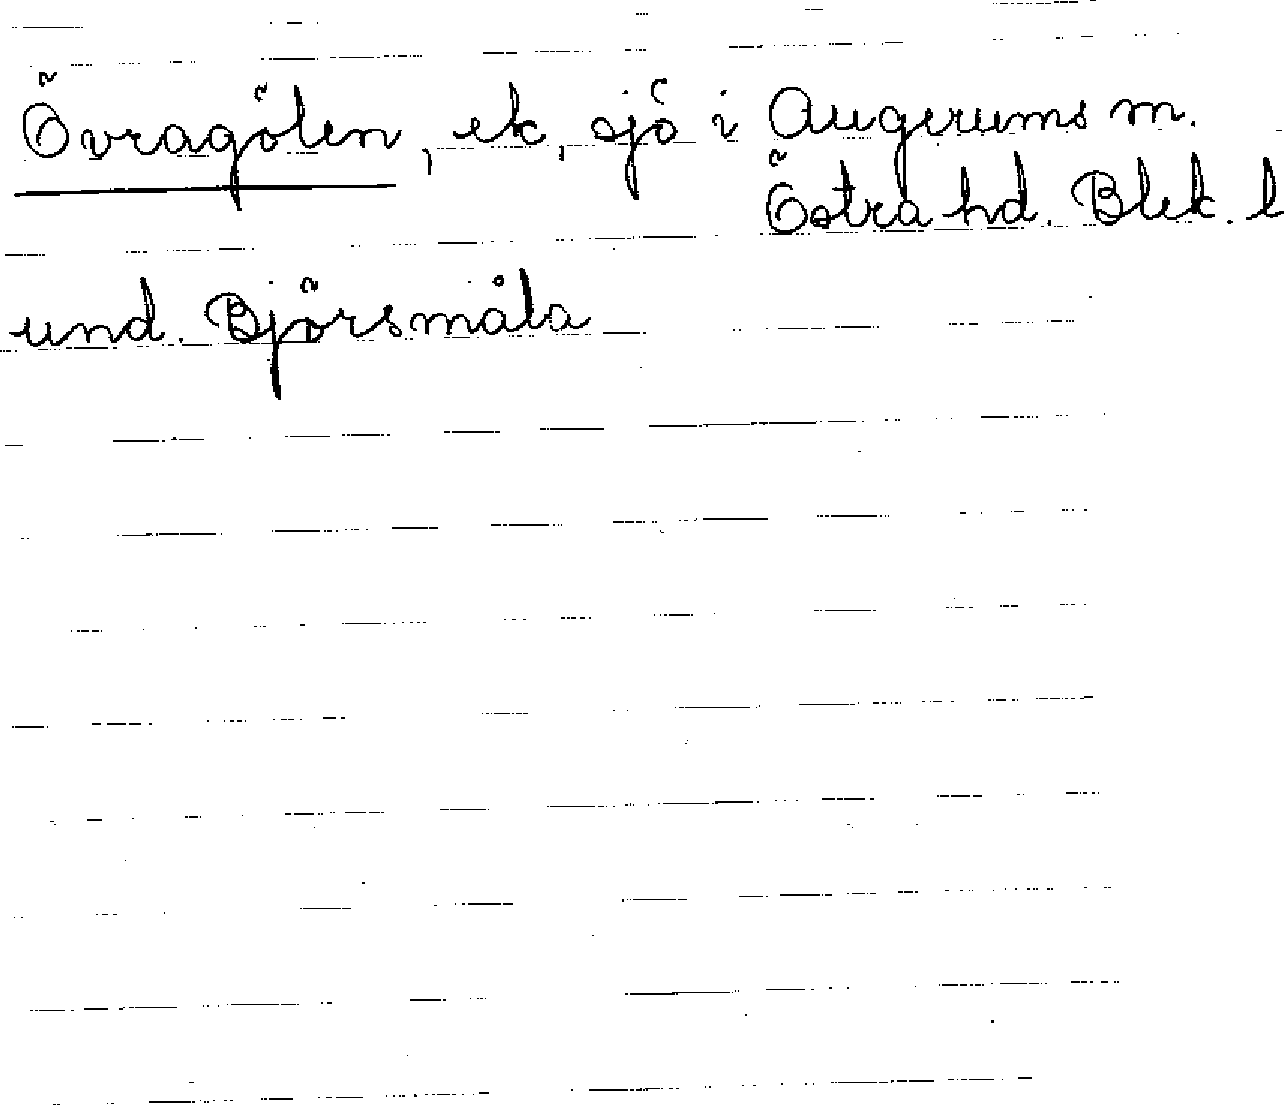 Övragölen, ek, sjö i Augerums sn.
Östra hd. Blek. l
und. Björsmåla